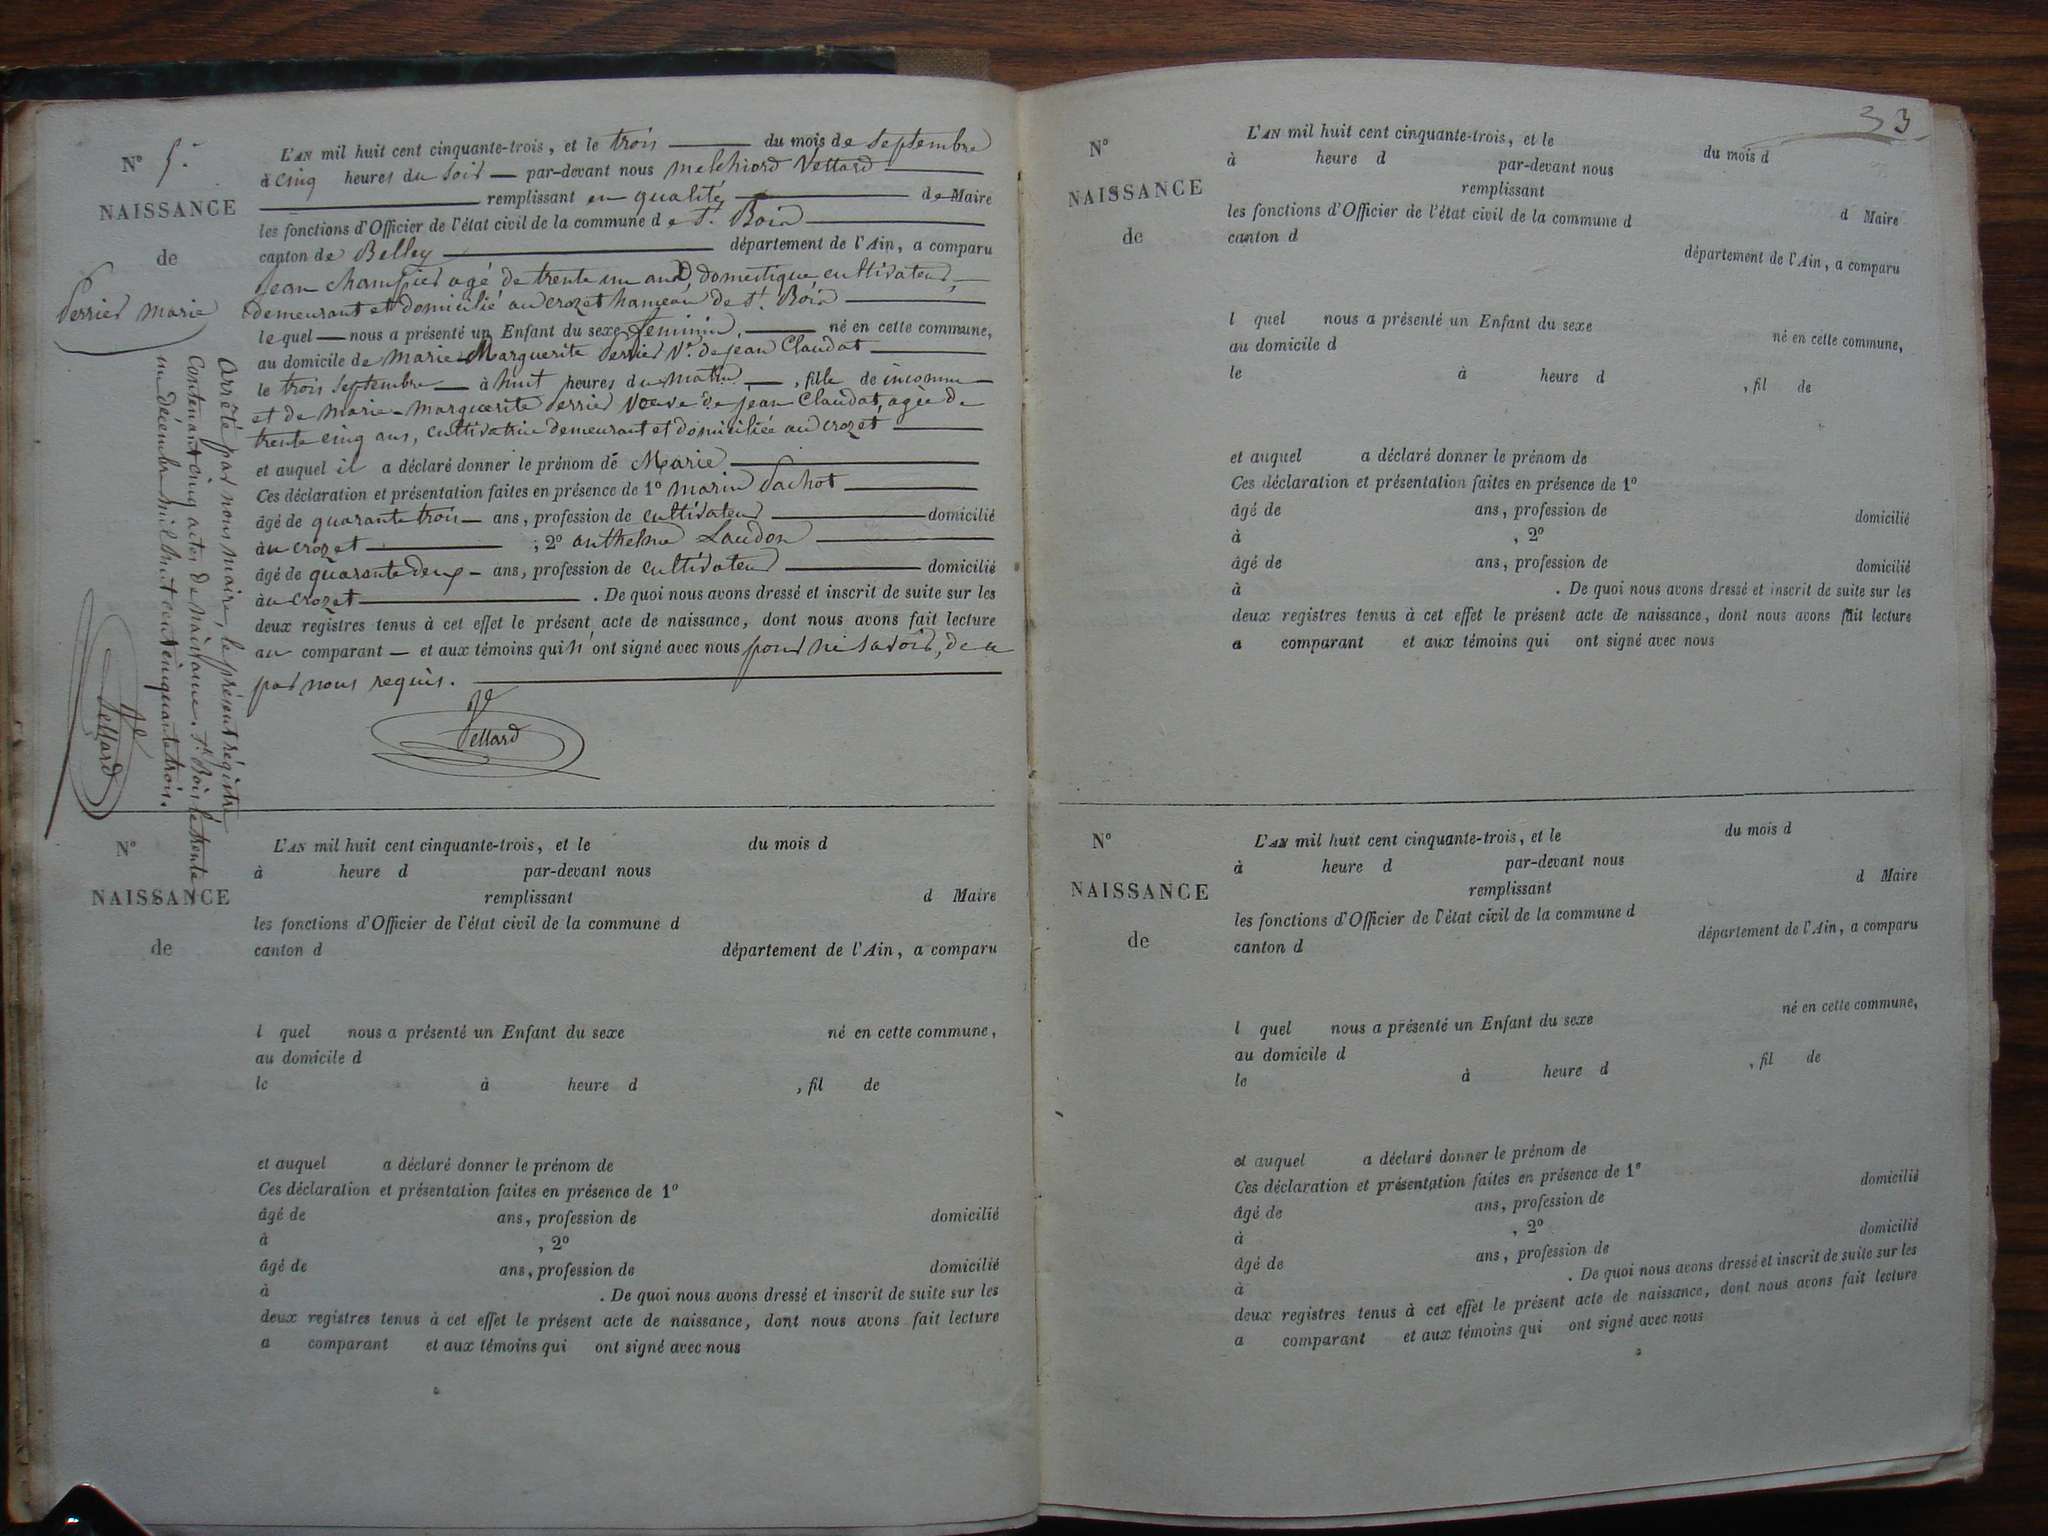 N° 5.
NAISSANCE
de
Perrier Marie
L'AN mil huit cent cinquante-trois, et le trois du mois de septembre
à cinq heures du soir par-devant nous Melchiord Vettard
remplissant en qualité de Maire
les fonctions d'Officier de l'état civil de la commune de St. Bois
canton de Belley département de l'Ain, a comparu
Jean Champier agé de trente un ans, domestique, cultivateur,
demeurant et domicilié au crozet hameau de St. Bois
le quel nous a présenté un Enfant du sexe feminin, né en cette commune,
au domicile de Marie Marguerite Perrier Ve. de jean Claudat
le trois septembre à huit heures du matin, fille de inconnu
et de Marie-Marguerite Perrier Veuve de jean Claudat, agée de
trente cinq ans, cultivatrice demeurant et domiciliée au crozet,
et auquel il a déclaré donner le prénom de Marie
Ces déclaration et présentation faites en présence de 1° marin Pachot
âgé de quarante trois ans, profession de cultivateur domicilié
au crozet ; 2° anthelme Laudon
âgé de quarante deux ans, profession de cultivateur domicilié
au crozet . De quoi nous avons dressé et inscrit de suite sur les
deux registres tenus à cet effet le présent acte de naissance, dont nous avons fait lecture
au comparant et aux témoins qui n'ont signé avec nous pour ne savoir, de ce
par nous requis.
Ve
Vettard
Arrêté par nous maire, le présent régistre
Contenant cinq actes de naissance. St. Bois le trente
un décembre mil huit cent cinquante trois.
Ve
Vettard
N°
NAISSANCE
de
L'AN mil huit cent cinquante-trois, et le du mois d
à heure d par-devant nous
remplissant d Maire
les fonctions d'Officier de l'état civil de la commune d
canton d département de l'Ain, a comparu
l quel nous a présenté un Enfant du sexe né en cette commune,
au domicile d
le à heure d , fil de
et auquel a déclaré donner le prénom de
Ces déclaration et présentation faites en présence de 1°
âgé de ans, profession de domicilié
à , 2°
âgé de ans, profession de domicilié
à . De quoi nous avons dressé et inscrit de suite sur les
deux registres tenus à cet effet le présent acte de naissance, dont nous avons fait lecture
a comparant et aux témoins qui ont signé avec nous
33
N°
NAISSANCE
de
L'AN mil huit cent cinquante-trois, et le du mois d
à heure d par-devant nous
remplissant d Maire
les fonctions d'Officier de l'état civil de la commune d
canton d département de l'Ain, a comparu
l quel nous a présenté un Enfant du sexe né en cette commune,
au domicile d
le à heure d , fil de
et auquel a déclaré donner le prénom de
Ces déclaration et présentation faites en présence de 1°
âgé de ans, profession de domicilié
à , 2°
âgé de ans, profession de domicilié
à . De quoi nous avons dressé et inscrit de suite sur les
deux registres tenus à cet effet le présent acte de naissance, dont nous avons fait lecture
a comparant et aux témoins qui ont signé avec nous
N°
NAISSANCE
de
L'AN mil huit cent cinquante-trois, et le du mois d
à heure d par-devant nous
remplissant d Maire
les fonctions d'Officier de l'état civil de la commune d
canton d département de l'Ain, a comparu
l quel nous a présenté un Enfant du sexe né en cette commune,
au domicile d
le à heure d , fil de
et auquel a déclaré donner le prénom de
Ces déclaration et présentation faites en présence de 1°
âgé de ans, profession de domicilié
à , 2°
âgé de ans, profession de domicilié
à . De quoi nous avons dressé et inscrit de suite sur les
deux registres tenus à cet effet le présent acte de naissance, dont nous avons fait lecture
a comparant et aux témoins qui ont signé avec nous